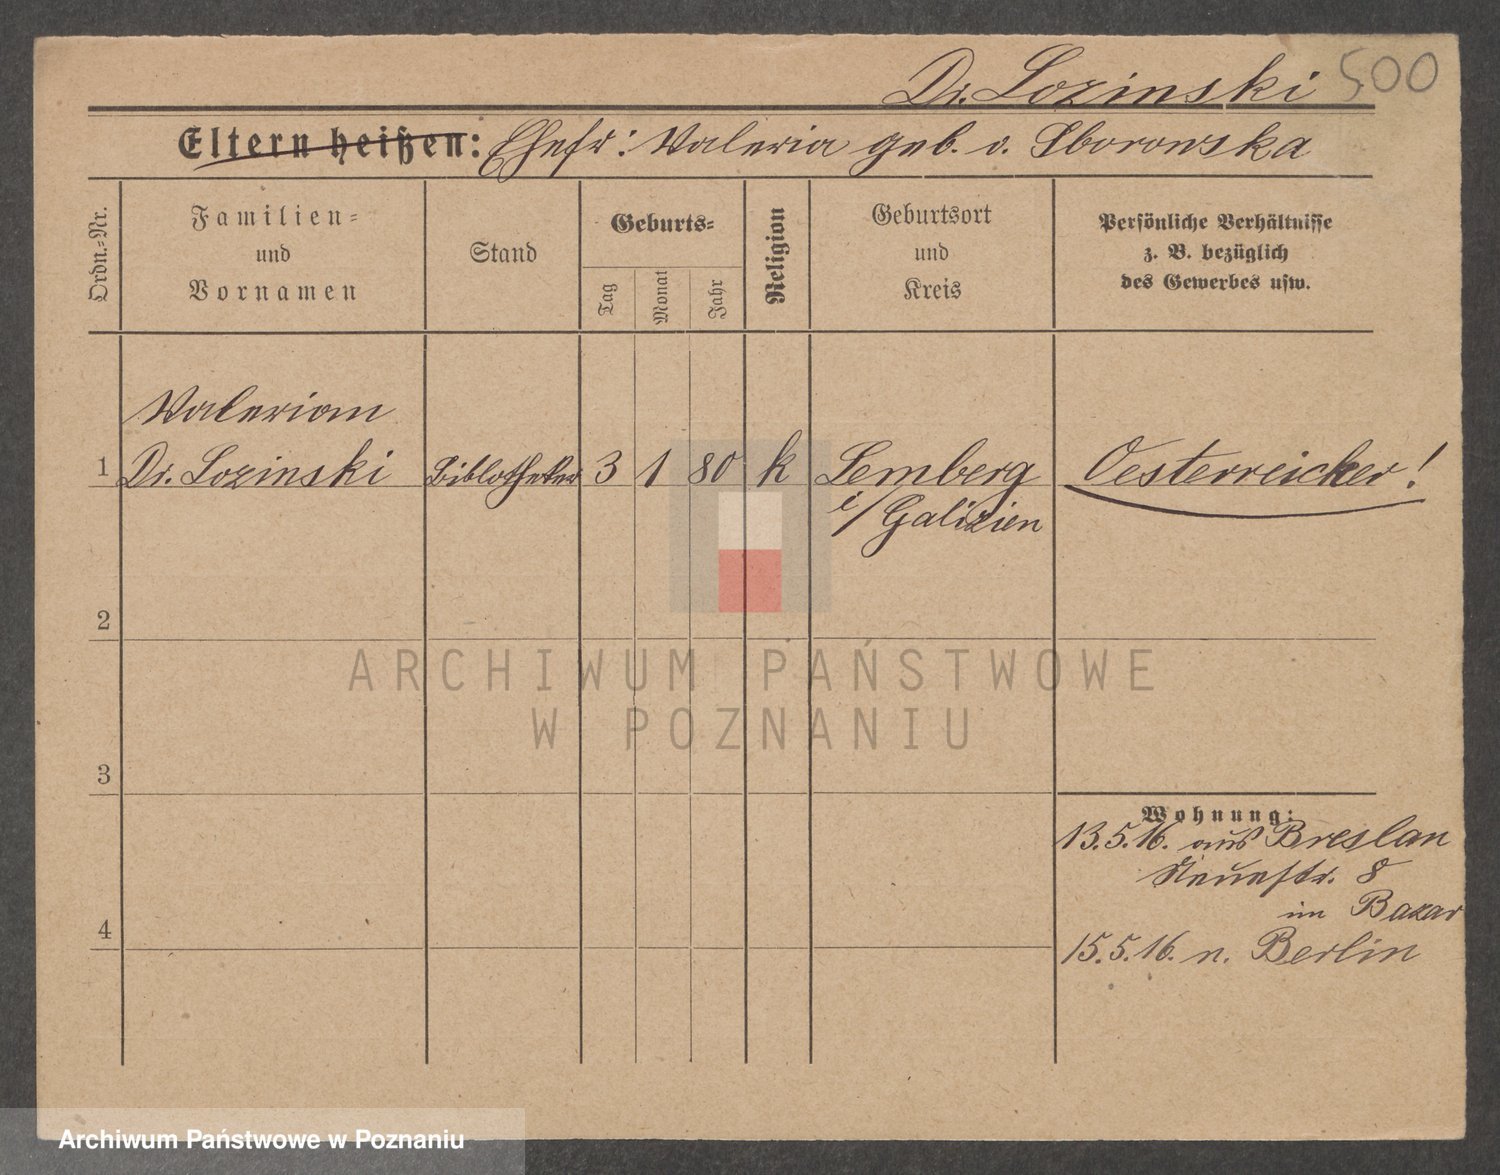 Dr. Lozinski 500
Eltern heißen: Ehefr: Valeria geb. v. Sborowska
Ordn.-Nr.
Familien-
und
Vornamen
Stand
Geburts-
Tag
Monat
Jahr
Religion
Geburtsort
und
Kreis
Persönliche Verhältnisse
z. B. bezüglich
des Gewerbes usw.
Valerian
1 Dr. Lozinski Bibliotheker 3 1 80 k Lemberg Oesterreicher!
i/ Galizien
2
3
4
Wohnung:
13.5.16. aus Breslau
Neuestr. 8
im Bazar
15.5.16. n. Berlin
ARCHIWUM PAŃSTWOWE
W POZNANIU
Archiwum Państwowe w Poznaniu